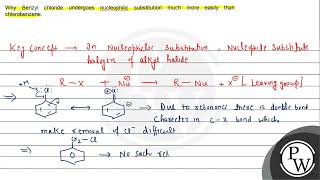 Why Benzyl chloride undergoes nucleophilic substitution much more easily than
chlorobenzene.
Key Concept → In Nucleophilic substitution, Nucleophile Substitute
halogen of alkyl halide
R-X + Nu⊖ → R-Nu + X⊖ [Leaving group]
+M :Cl: Cl⊕
⇒ ↔ → Due to resonance there is double bond
Character in C-X bond which
make removal of Cl⊖ difficult
CH₂-Cl
⇒ → No such
PW